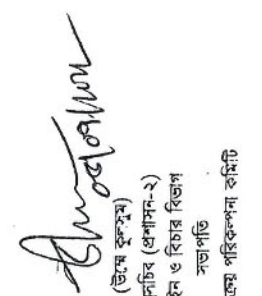 (উম্মে কুলসুম)
সচিব (প্রশাসন-২)
ন ও বিচার বিভাগ
সভাপতি
ক্রয় পরিকল্পনা কমিটি